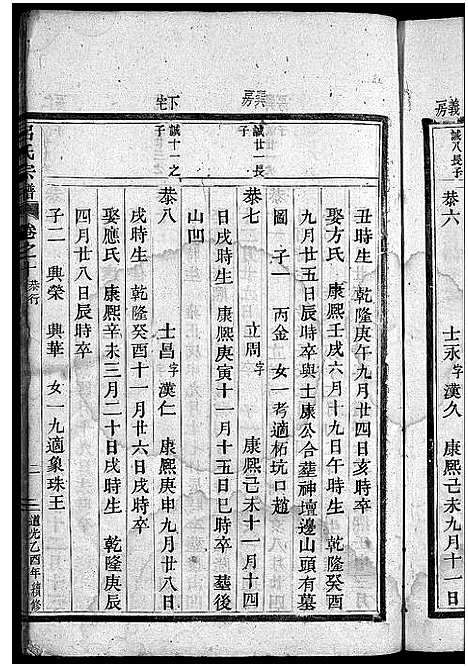 義房
誠八長子
恭六 士永字漢久 康熙己未九月十一日
丑時生 乾隆庚午九月廿四日亥時卒
娶方氏 康熙壬戌六月十九日午時生 乾隆癸酉
九月廿五日辰時卒與士康公合塟神壇邊山頭有墓
圖 子一 丙金 女一考適柘坑口趙
房
誠廿一長子
恭七 立問字 康熙己未十一月十四
日戌時生 康熙庚寅十一月十五日巳時卒 墓後
山凹
下宅
誠十一之子
恭八 士昌字漢仁 康熙庚申九月廿八日
戌時生 乾隆癸酉十一月廿六日戌時卒
娶應氏 康熙辛未三月二十日戌時生 乾隆庚辰
四月廿八日辰時卒
子二 興榮 興華 女一九適象珠王
呂氏宗譜 卷之 恭行 二 道光乙酉年續修